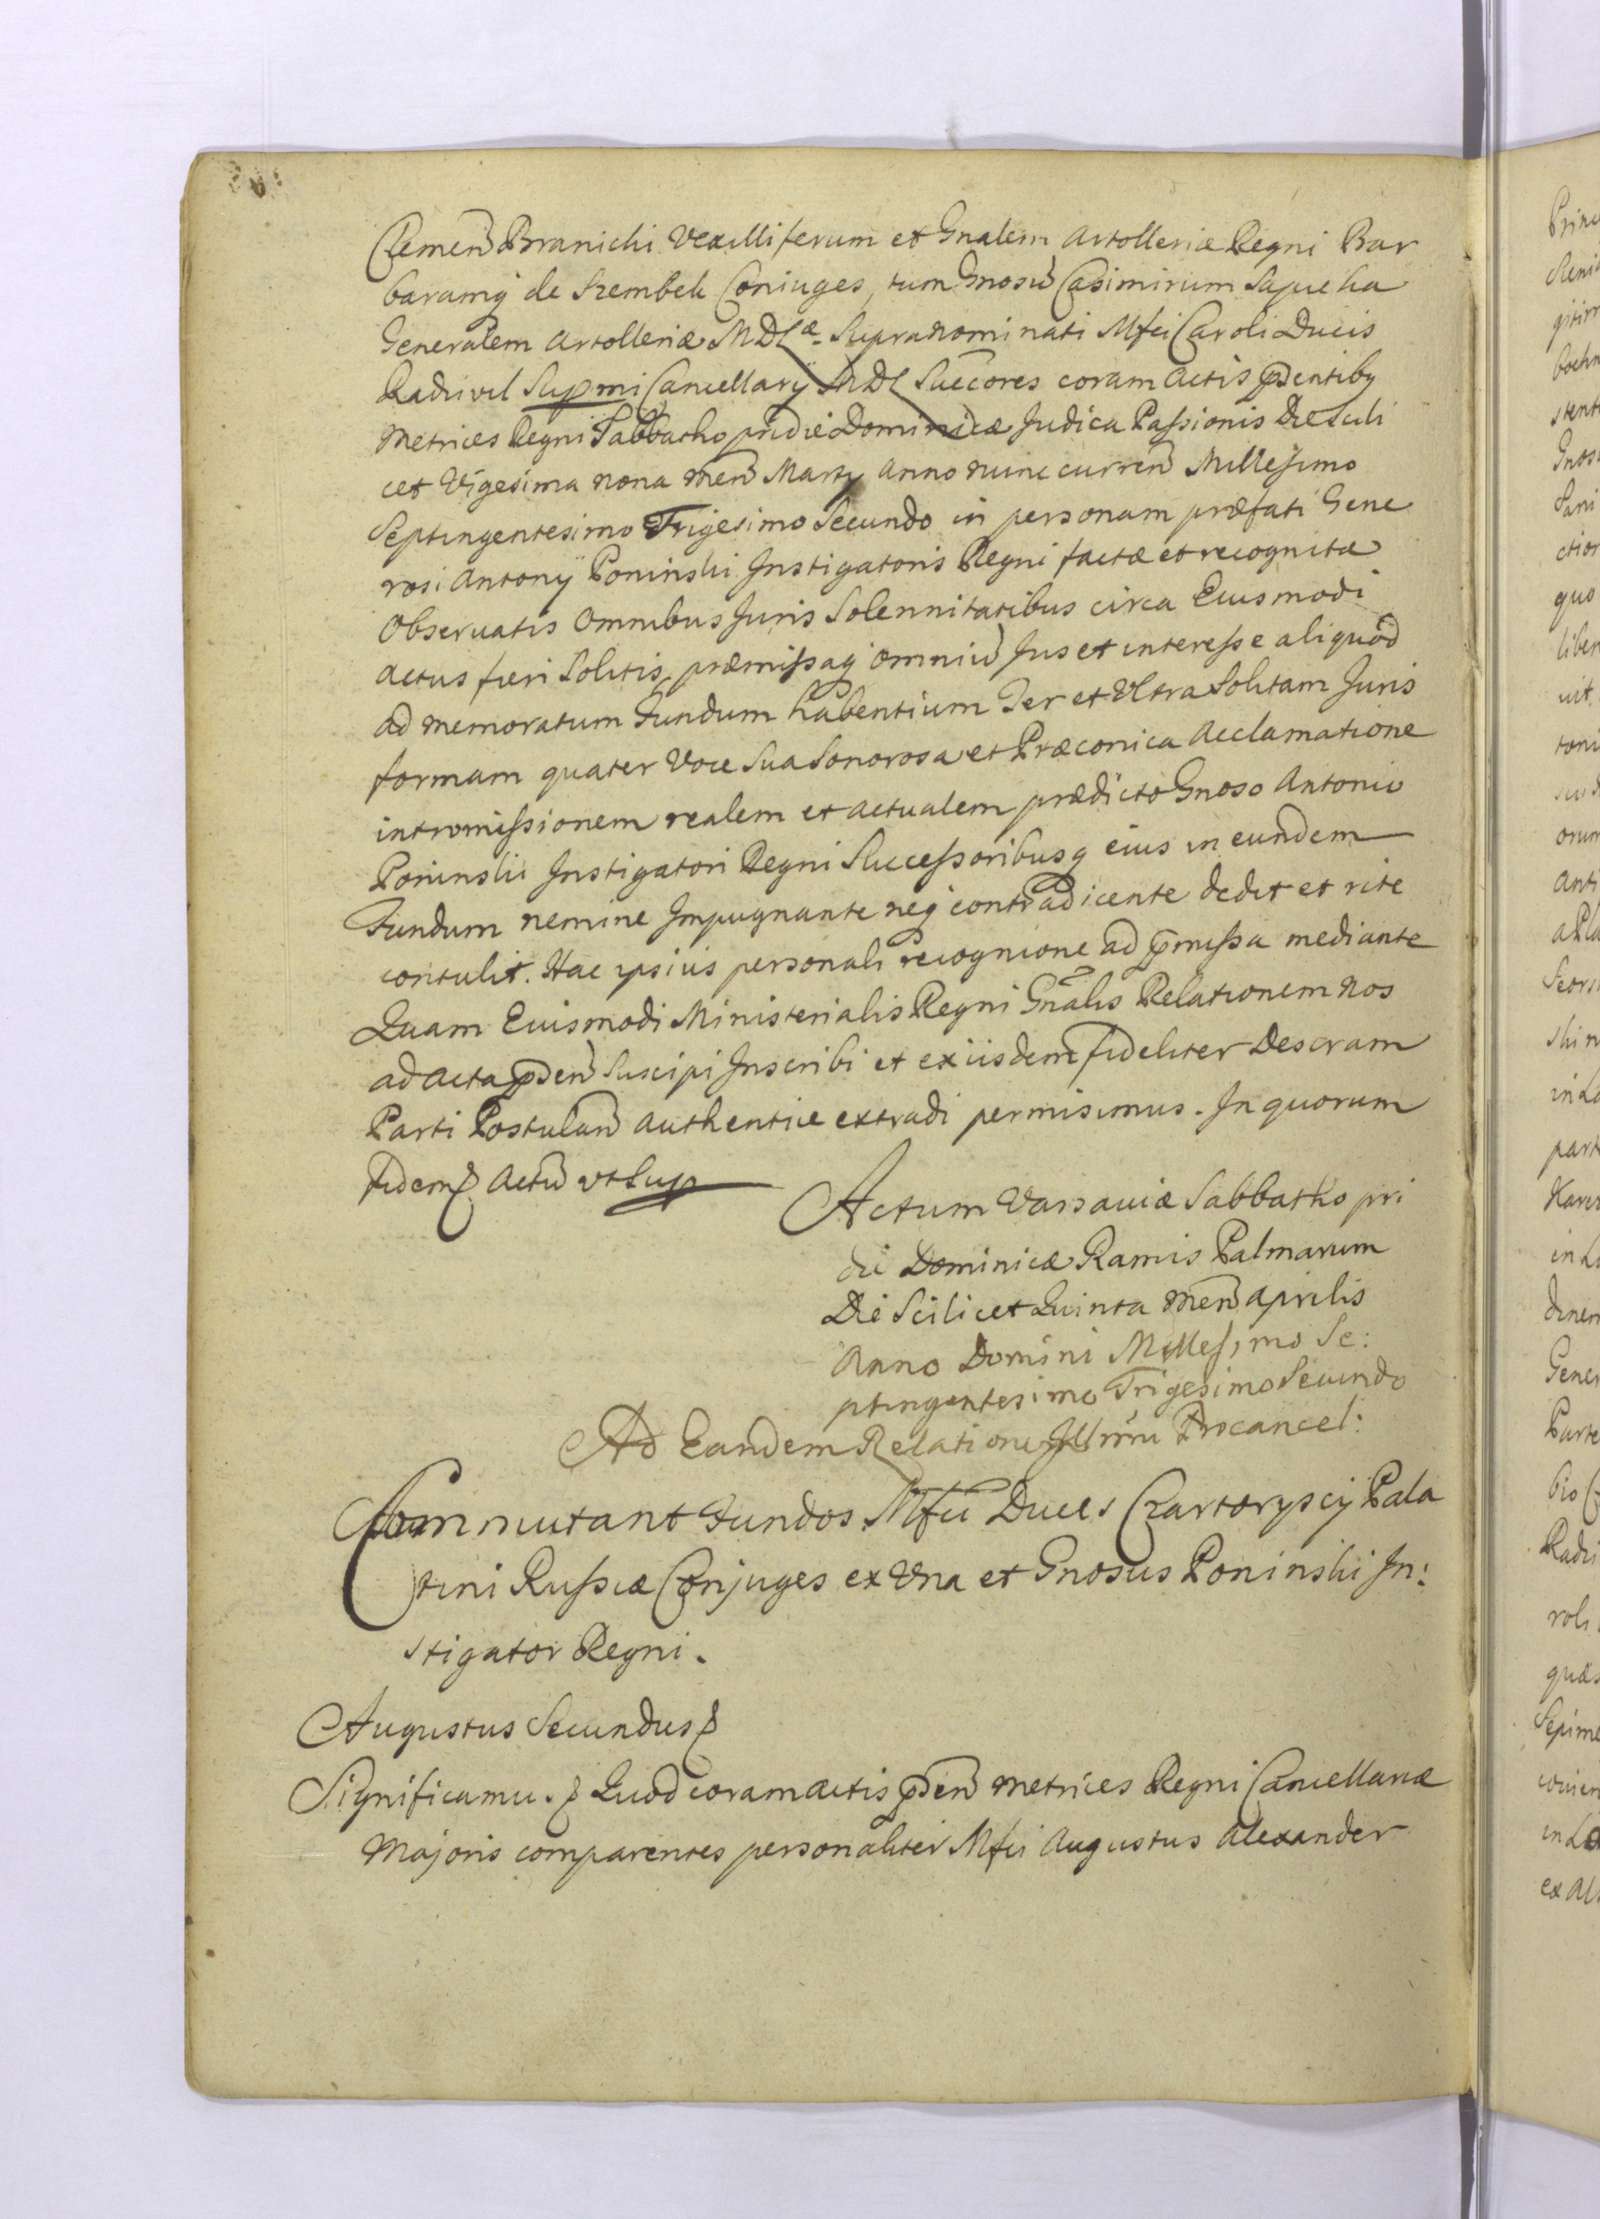 Clemen Branicki Vexilliferum et Gnalem Artolleriæ Regni Bar
baramq de Szembek Coniuges, tum Gnosu Casimirum Sapieha
Generalem Artolleriæ MDLæ. Supranominati Mfci Caroli Ducis
Radivil Supmi Cancellarij MDL Succores coram Actis pñdentibq
Metrices Regni Sabbatho pridie Dominicæ Judica Passionis Die Scili
cet Vigesima nona Men Martij Anno nunc curren Millesimo
Septingentesimo Trigesimo Secundo in personam præfati Gene
rosi Antonij Poninski Instigatoris Regni factæ et recognitæ
Observatis Omnibus Juris Solennitatibus circa Eiusmodi
Actus fieri Solitis, præmissaq omniu Jus et interesse aliquod
ad memoratum Fundum habentium Ter et Ultra Solitam Juris
formam quater Voce Sua Sonorosa et Præconica Acclamatione
intromissionem realem et actualem prædicto Gnoso Antonio
Poninski Instigatori Regni Successoribusq eius in eundem
Fundum nemine Impugnante neq contradicente dedit et rite
contulit. Hac ipsius personali recognione ad pmissa mediante
Quam Eiusmodi Ministerialis Regni Gnalis Relationem Nos
ad Acta pñden Suscipi Inscribi et ex iisdem fideliter Descram
Parti Postulan Authentice extradi permisimus. In quorum
fidem Actu vt Sup
Actum Varsaviæ Sabbatho pri
die Dominicæ Ramis Palmarum
Die Scilicet Quinta Men Aprilis
Anno Domini Millesimo Se:
ptingentesimo Trigesimo Secundo
Ad Eandem Relatione Illmi Procancel:
Commutant Fundos Mfci Duces Czartoryscij Pala
tini Russiæ Conjuges ex Una et Gnosus Poninski In:
stigator Regni.
Augustus Secundus
Significamu. Quod coram Actis pñden Metrices Regni Cancellariæ
Majoris comparentes personaliter Mfci Augustus Alexander